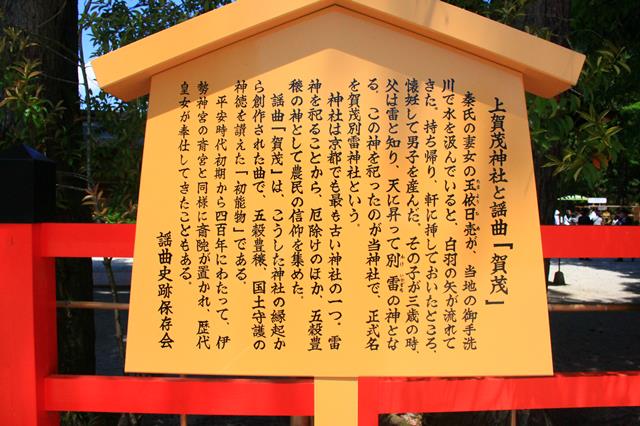 上賀茂神社と謡曲「賀茂」
秦氏の妻女の玉依日売が、当地の御手洗
川で水を汲んでいると、白羽の矢が流れて
きた。持ち帰り、軒に挿しておいたところ、
懐妊して男子を産んだ。その子が三歳の時、
父は雷と知り、天に昇って別雷の神とな
る。この神を祀ったのが当神社で、正式名
を賀茂別雷神社という。
神社は京都でも最も古い神社の一つ。雷
神を祀ることから、厄除けのほか、五穀豊
穣の神として農民の信仰を集めた。
謡曲「賀茂」は、こうした神社の縁起か
ら創作された曲で、五穀豊穣、国土守護の
神徳を讃えた「初能物」である。
平安時代初期から四百年にわたって、伊
勢神宮の斎宮と同様に斎院が置かれ、歴代
皇女が奉仕してきたこともある。
謡曲史跡保存会